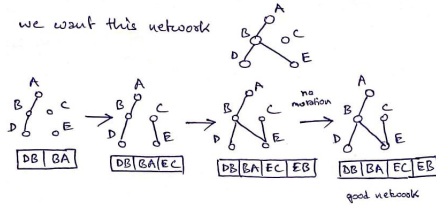 we want this network
A
B
C
D
E
A
B
C
D
E
DB BA
A
B
C
D
E
DB BA EC
A
B
C
D
E
DB BA EC EB
no
mutation
A
B
C
D
E
DB BA EC EB
good network